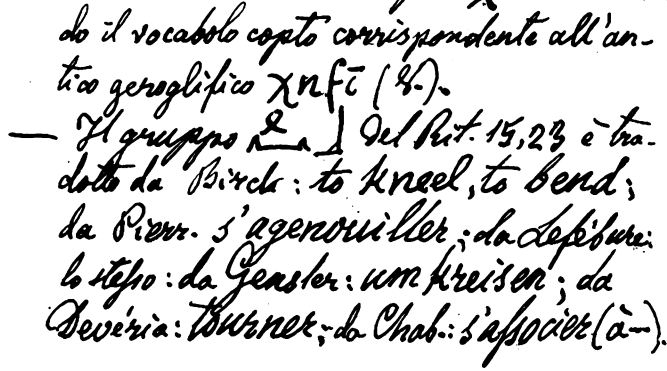 do il vocabolo copto corrispondente all'an-
tico geroglifico χnfī (8.).
— Il gruppo del Rit. 15,23 è tra-
dotto da Birch: to kneel, to bend;
da Pierr. s'agenouiller; da Lefébure:
lo stesso: da Gensler: umkreisen; da
Devéria: tourner; da Chab.: s'associer (à—).